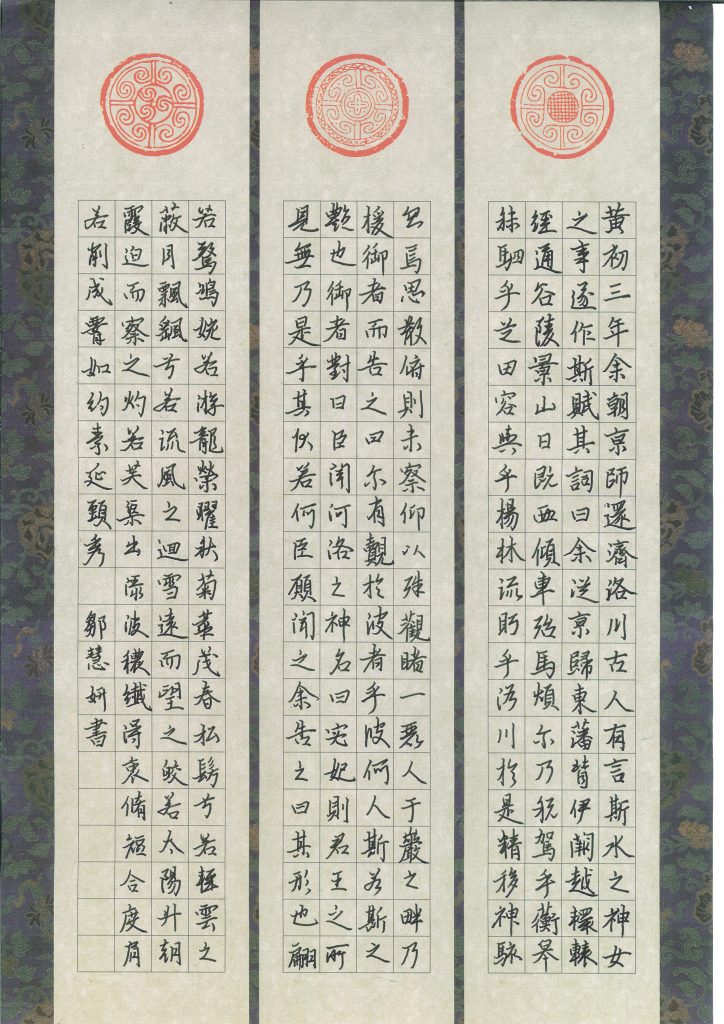 黃初三年余朝京師還濟洛川古人有言斯水之神女
之事遂作斯賦其詞曰余從京歸東藩背伊闕越轘轅
經通谷陵景山日既西傾車殆馬煩尔乃稅駕乎蘅皋
秣駟乎芝田容與乎楊林流眄乎洛川於是精移神駭
忽焉思散俯則未察仰以殊觀睹一麗人于巖之畔乃
援御者而告之曰尔有覿於彼者乎彼何人斯若斯之
艷也御者對曰臣聞河洛之神名曰宓妃則君王之所
見無乃是乎其狀若何臣願聞之余告之曰其形也翩
若驚鴻婉若游龍榮曜秋菊華茂春松髣兮若輕雲之
蔽月飄颻兮若流風之迴雪遠而望之皎若太陽升朝
霞迫而察之灼若芙渠出淥波穠纖得衷脩短合度肩
若削成腰如約素延頸秀 鄒慧妍書